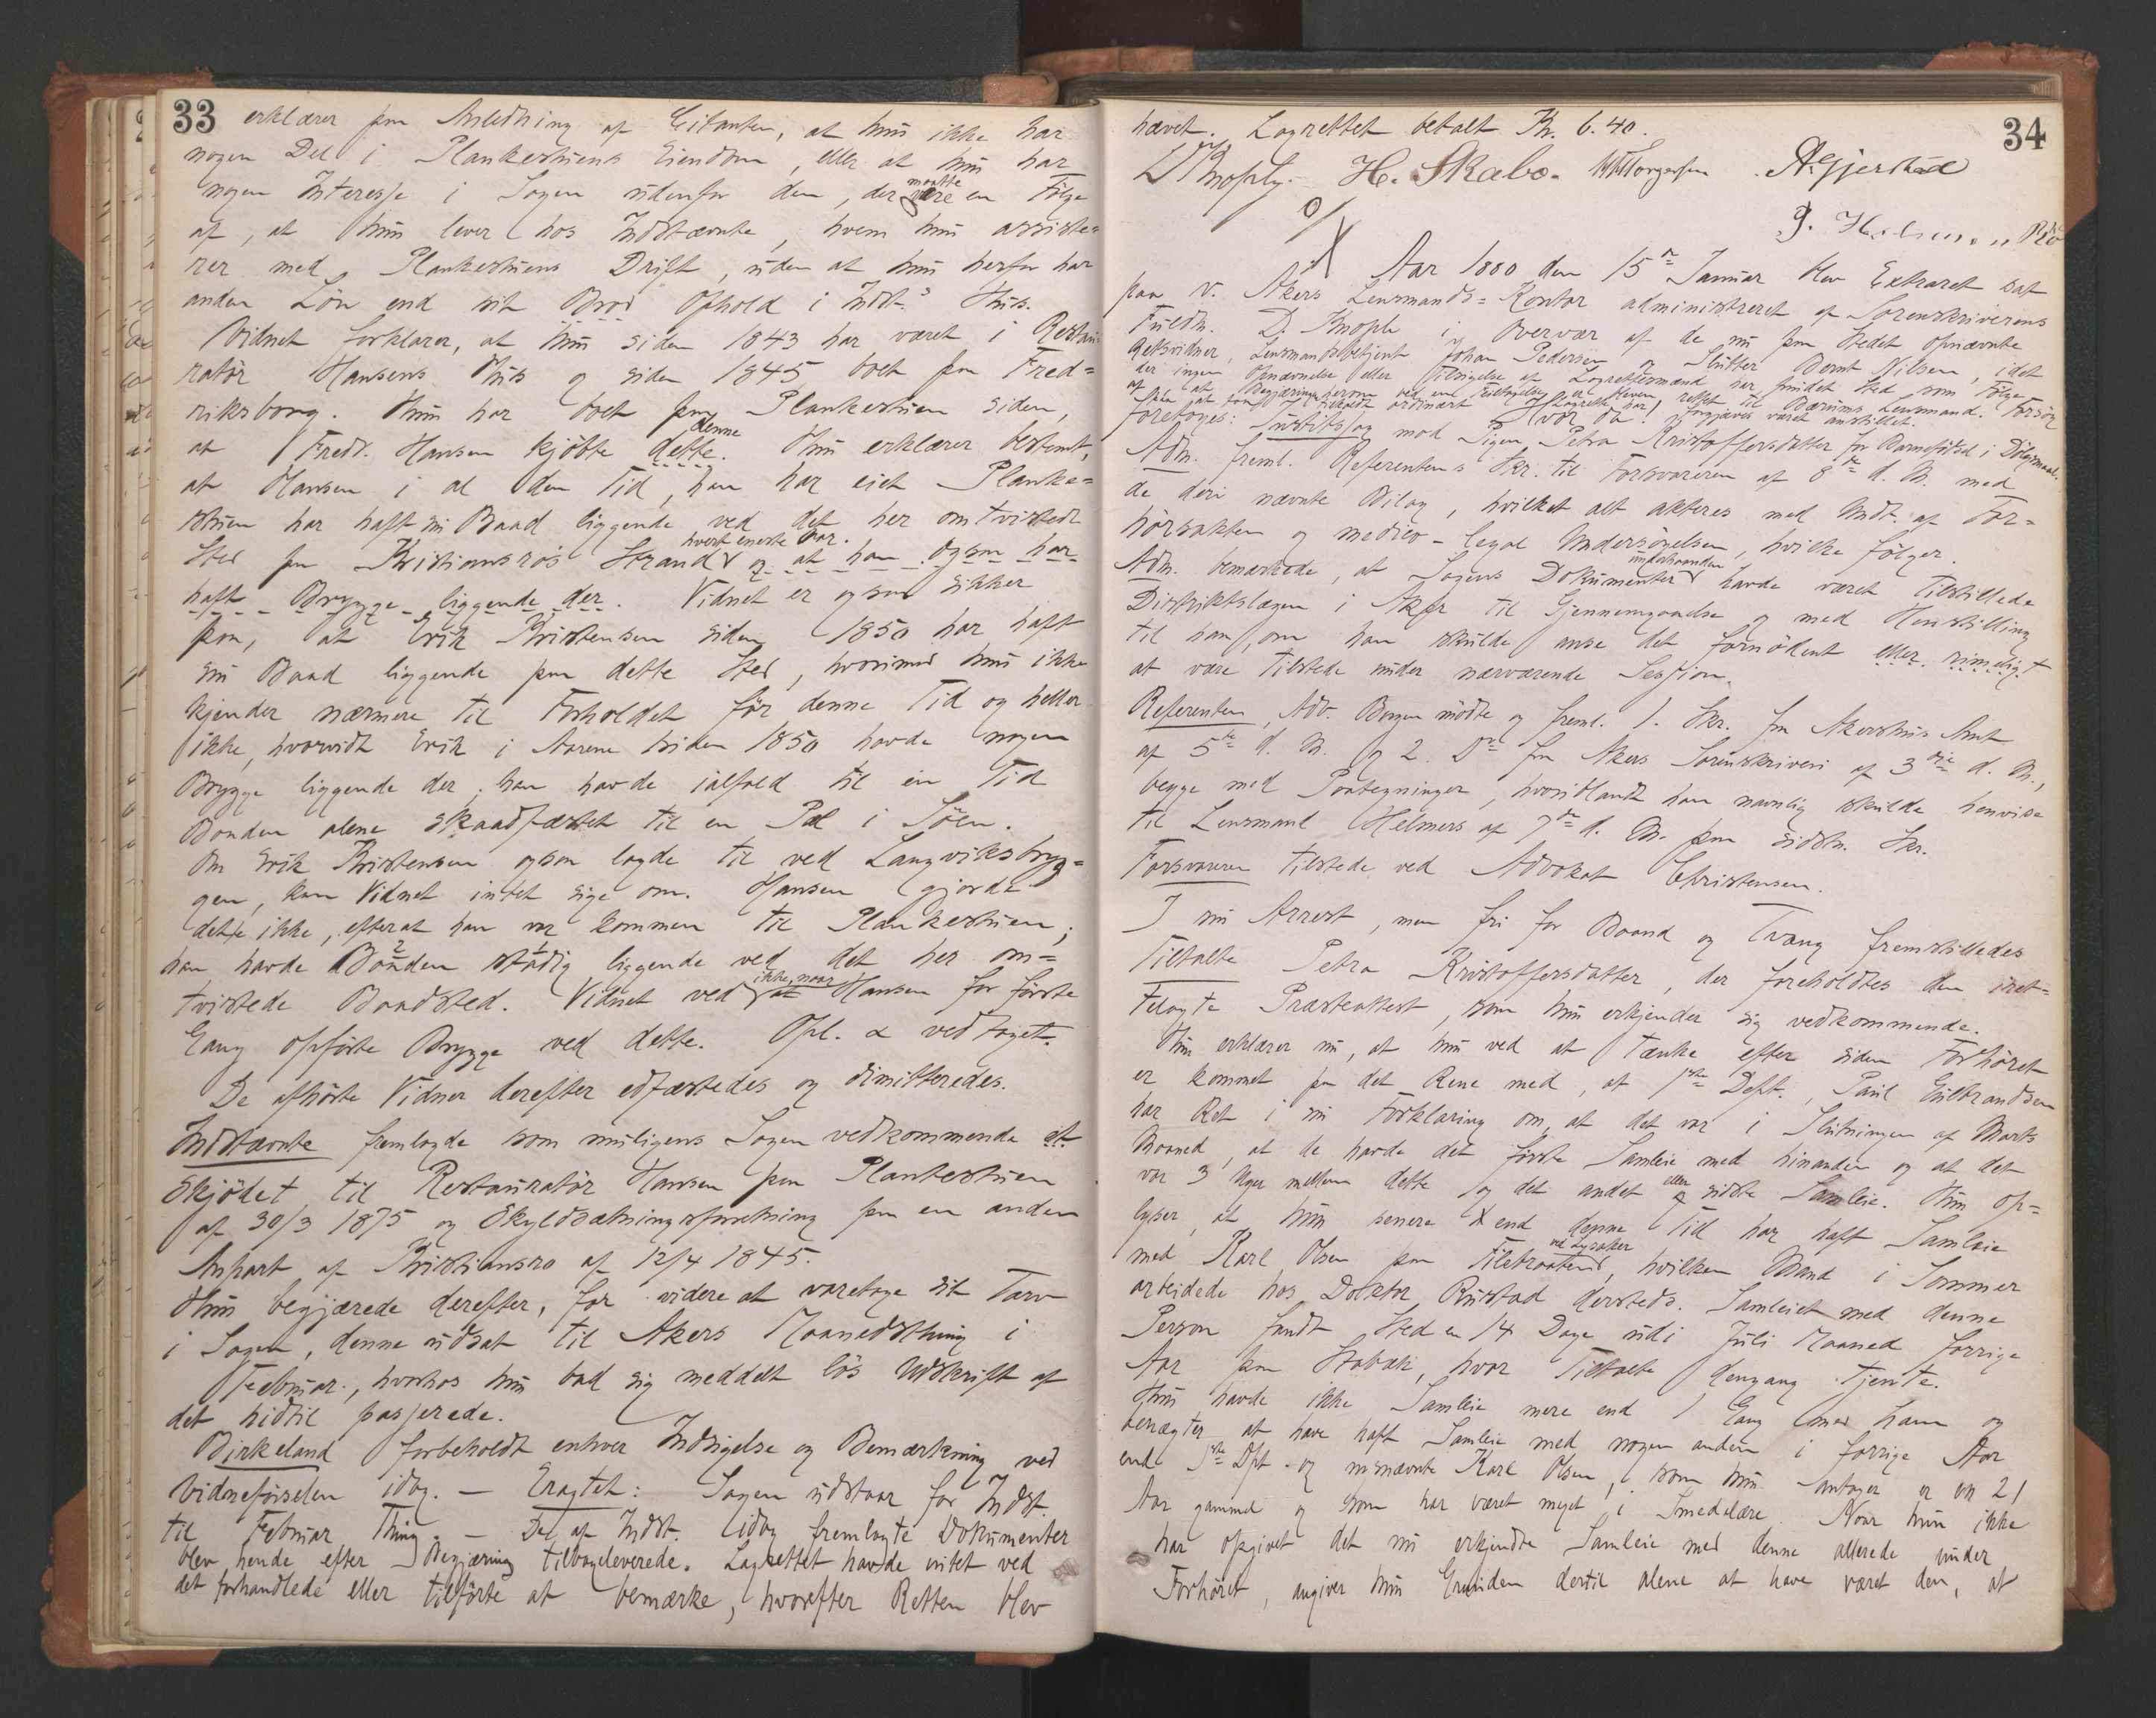 33
erklærer paa Anledning af Citanten, at hun ikke har
nogen Del i Plankestuens Eiendom, eller at hun har
nogen Interesse i Sagen udenfor den, der maatte være en Følge
af, at hun lever hos Indstævnte, hvem hun assiste=
rer med Plankestuens Drift, uden at hun herfor har
anden Løn end sit Brød Ophold i Indst.s Hus.
Vidnet forklarer, at hun siden 1843 har været i Restau
ratør Hansens Hus og siden 1845 boet paa Fred=
riksborg. Hun har boet paa Plankestuen siden,
at Fredr. Hansen kjøbte dette denne. Hun erklærer bestemt,
at Hansen i al den Tid, han har eiet Planke=
stuen har haft sin Baad liggende ved det her omtvistede
Sted paa Kristiansrøs Strand hvert eneste Aar. og at han ogsaa har
haft Brygge liggende der. Vidnet er ogsaa sikker
paa, at Erik Kristensen siden 1850 har haft
sin Baad liggende paa dette Sted, hvorimod hun ikke
kjender nærmere til Forholdet før denne Tid og heller
ikke, hvorvidt Erik i Aarene siden 1850 havde nogen
Brygge liggende der; han havde ialfald til en Tid
Baaden alene skaadfæstet til en Pæl i Søen.
Om Erik Kristensen ogsaa lagde til ved Langviksbryg=
gen, kan Vidnet intet sige om. Hansen gjorde
dette ikke, efterat han var kommen til Plankestuen;
han havde Baaden 2 stadig 1 liggende ved det her om=
tvistede Baadsted. Vidnet ved ikke, naar at Hansen for første
Gang opførte Brygge ved dette. Opl. & vedtaget.
De afhørte Vidner derefter edfæstedes og dimitteredes.
Indstævnte fremlagde som muligens Sagen vedkommende et
Skjødet til Restauratør Hansen paa Plankestuen
af 30/3 1875 og Skyldsætningsforretning paa en anden
Anpart af Kristiansro af 12/4 1845.
Hun begjærede derefter, for videre at varetage sit Tarv
i Sagen, denne udsat til Akers Maanedsthing i
Februar, hvorhos hun bad sig meddelt løs Udskrift af
det hidtil passerede.
Birkeland forbeholdt enhver Indsigelse og Bemærkning ved
Vidneførselen idag. — Eragtet: Sagen udstaar for Indst.
til Februar Thing. — De af Indst. idag fremlagte Dokumenter
blev hende efter Begjæring tilbageleverede. Lagrettet havde intet ved
det forhandlede eller tilførte at bemærke, hvorefter Retten blev
34
hævet. Lagrettet betalt Kr. 6.40.
D Knoph. H. Skabo. Torgersen A Gjerstad
Aar 1880 den 15de Januar blev Extraret sat
paa V. Akers Lensmands=Kontor administreret af Sorenskriverens
Fuldm. D. Knoph i Overvær af de nu paa Stedet opnævnte
Retsvidner, Lensmandsbetjent Johan Pedersen og Slutter Bernt Nilsen, idet
der ingen Opnævnelse eller Tilsigelse af Lagrettesmænd har fundet Sted som Følge
af at Begjæring herom ved en Feiltagelse er bleven rettet til Bærums Lensmand. Forsøg
foretoges: Justitssag mod Pigen Petra Kristoffersdatter for Barnefødsel i Dølgsmaal.
Adm. freml. Referentens Skr. til Forsvareren af 8de d. M. med
de deri nævnte Bilag, hvilket alt akteres med Undt. af For=
hørsakten og medico-legal Undersøgelsen, hvilke følger.
Adm. bemærkede, at Sagens Dokumenter havde været tilstillede
Distriktslægen i Aker til Gjennemgaaelse og med Henstilling
til ham, om han skulde anse det fornødent eller rimeligt
at være tilstede under nærværende Session.
Referenten, Adv. Bergen mødte og freml. 1. Skr. fra Akershus Amt
af 5te d. M. og 2. Do fra Akers Sorenskriveri af 3die d. M.,
begge med Paategninger, hvoriblandt han navnlig skulde henvise
til Lensmand Helmers af 7de d. M. paa sidstn. Skr.
Forsvareren tilstede ved Advokat Christensen.
I sin Arrest, men fri for Baand og Tvang fremstilledes
Tiltalte Petra Kristoffersdatter, der foreholdtes den iret=
telagte Præsteattest, som hun erkjender sig vedkommende.
Hun erklærer nu, at hun ved at tænke efter siden Forhøret
er kommet paa det Rene med, at 1ste Dept., Paul Gulbrandsen
har Ret i sin Forklaring om, at det var i Slutningen af Marts
Maaned, at de havde det første Samleie med hinanden og at det
var 3 Uger mellem dette og det andet eller sidste Samleie. Hun op=
lyser, at hun senere end denne Tid har haft Samleie
med Karl Olsen paa Filstraaten ved Lysaker, hvilken Mand i Sommer
arbeidede hos Doktor Rustad dersteds. Samleiet med denne
Person fandt Sted en 14 Dage udi Juli Maaned forrige
Aar paa Stabæk, hvor Tiltalte dengang tjente.
Hun havde ikke Samleie mere end 1 Gang med ham og
benægter at have haft Samleie med nogen anden i forrige Aar
end 1ste Dpt. og nysnævnte Karl Olsen, som hun antager er en 21
Aar gammel og som har været meget i Smedelære. Naar hun ikke
har opgivet det nu erkjendte Samleie med denne allerede under
Forhøret, angiver hun Grunden dertil alene at have været den, at